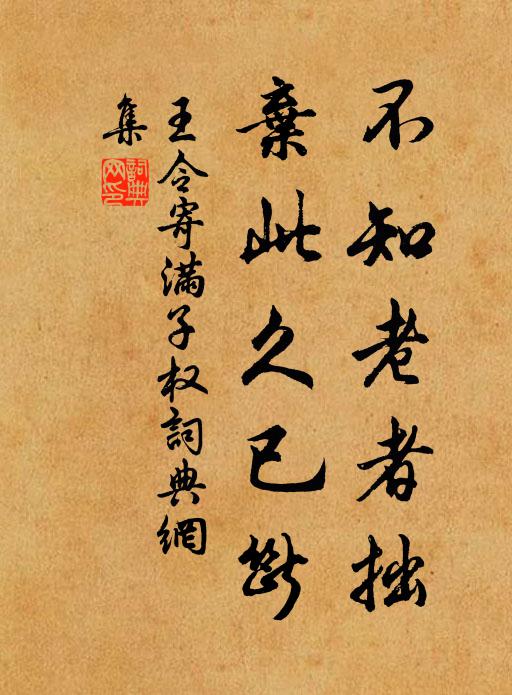 不知老者拙
棄此久已斷
王令寄滿子权詞典網
集
詞典网印